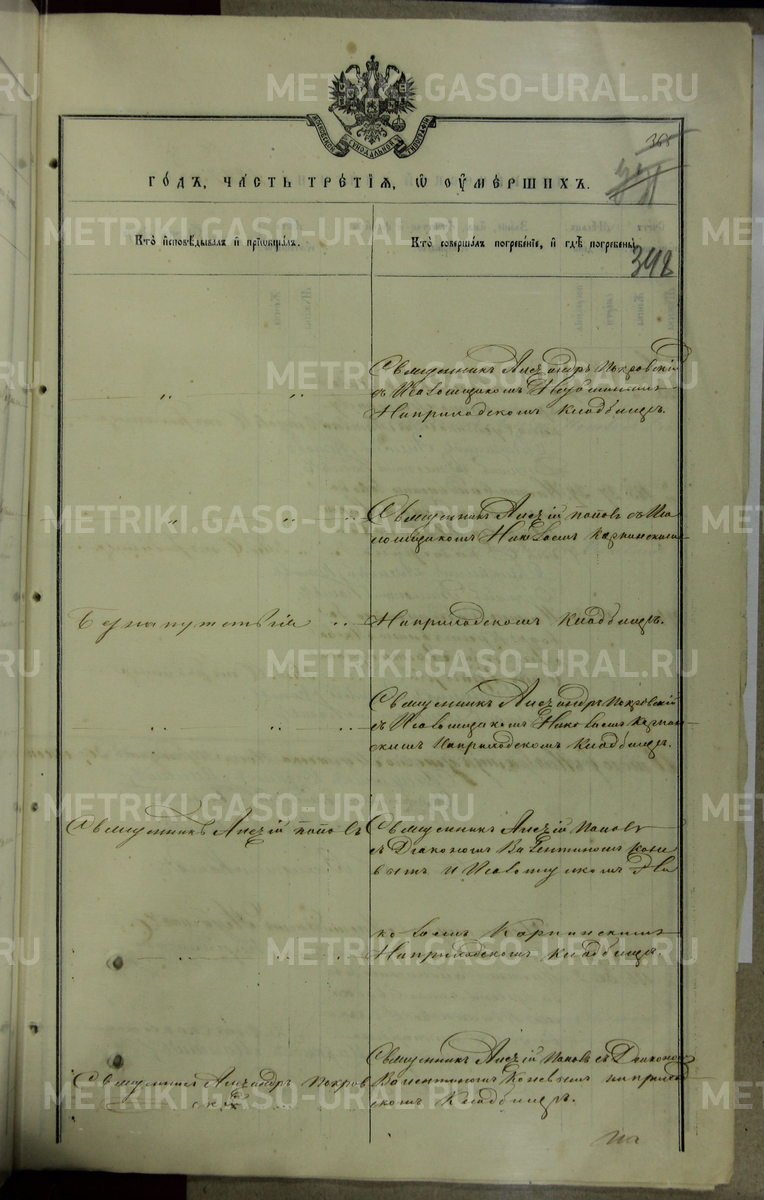 METRIKI.GASO-URAL.RU
365
371
348
ГОДЪ, ЧАСТЬ ТРЕТІЯ, Ѡ ОУМЕРШИХЪ.
Кто исповѣдывалъ и пріобщалъ.
Кто совершалъ погребеніе, и гдѣ погребены.
Священникъ Александръ Покровскій
съ Псаломщикомъ
На приходскомъ Кладбищѣ.
Священникъ Алексій Поповъ съ Пса
ломщикомъ Николаемъ Карпинскимъ
Безъ напутствія
На приходскомъ Кладбищѣ.
Священникъ Александръ Покровскій
съ Псаломщикомъ Николаемъ Карпин
скимъ На приходскомъ Кладбищѣ.
Священникъ Алексій Поповъ
Священникъ Алексій Поповъ
съ Діакономъ Валентиномъ Коне
вымъ и Псаломщикомъ Ни
колаемъ Карпинскимъ
На приходскомъ Кладбищѣ
Священникъ Александръ Покров
скій
Священникъ Алексій Поповъ съ Діакономъ
Валентиномъ Коневымъ на приход
скомъ Кладбищѣ.